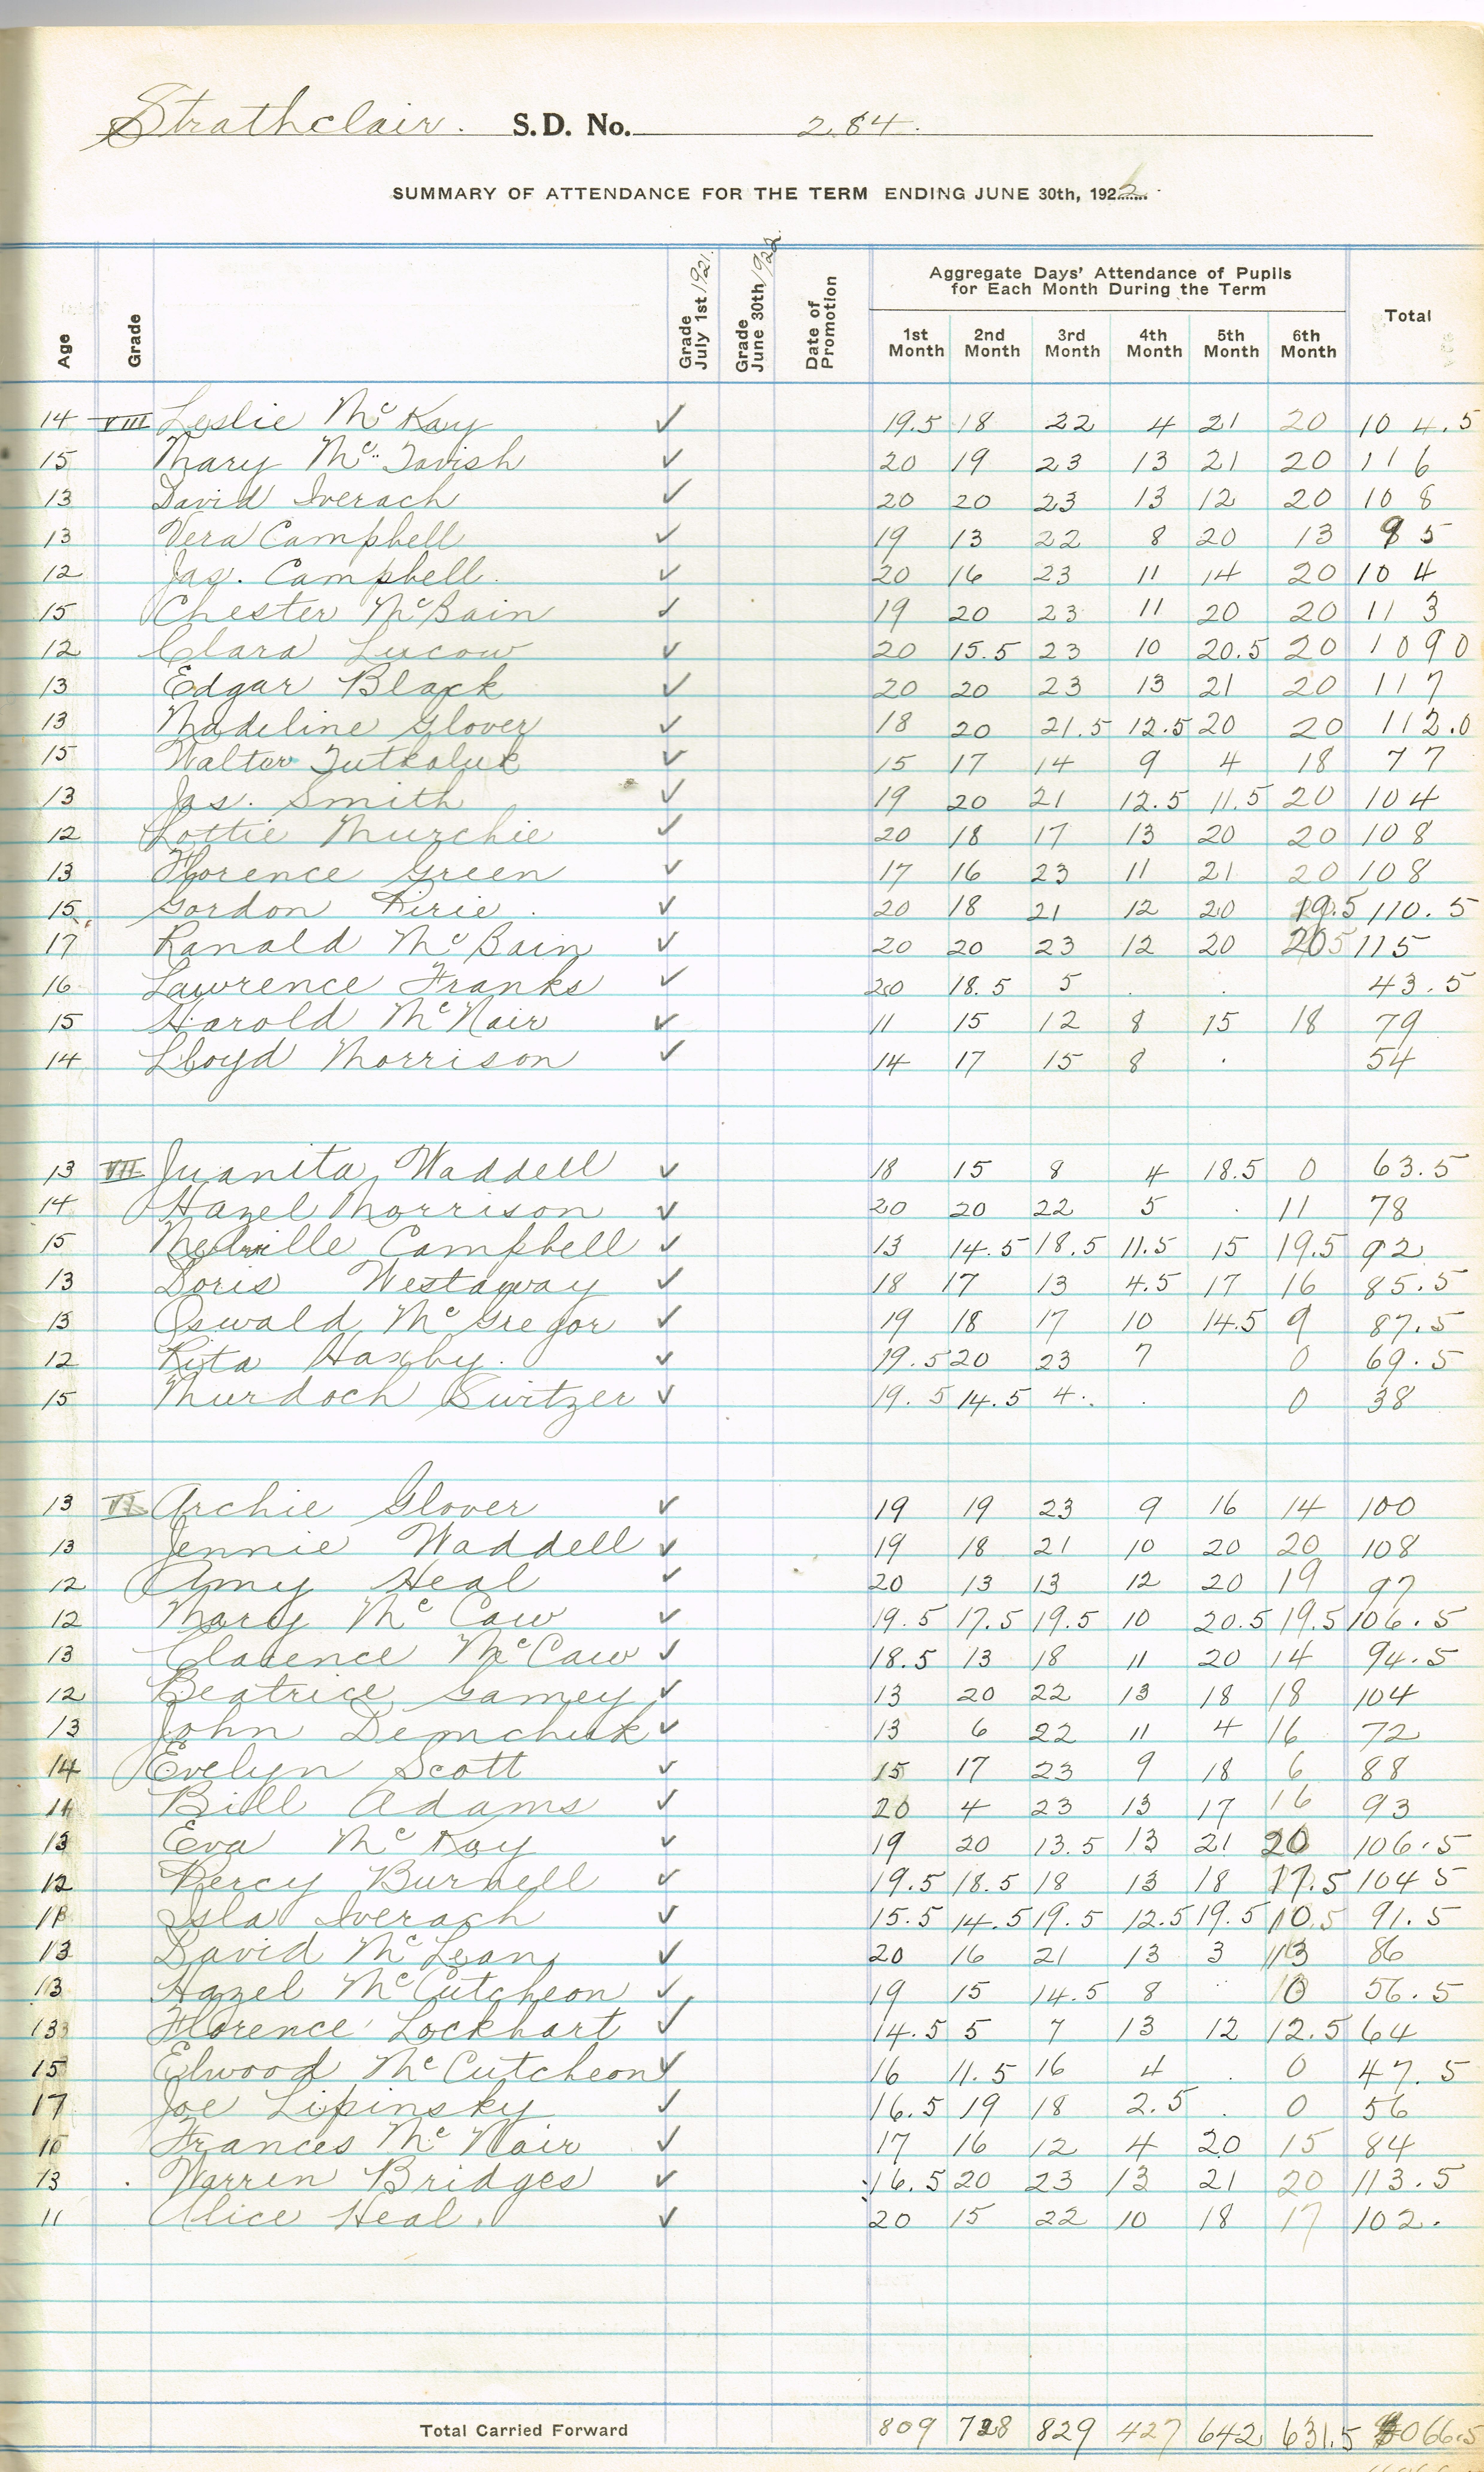 Strathclair. S.D. No. 284.
SUMMARY OF ATTENDANCE FOR THE TERM ENDING JUNE 30th, 1922.
Age Grade Grade July 1st 1921. Grade June 30th 1922. Date of Promotion Aggregate Days' Attendance of Pupils for Each Month During the Term Total
1st Month 2nd Month 3rd Month 4th Month 5th Month 6th Month
14 VIII Leslie McKay ✓ 19.5 18 22 4 21 20 104.5
15 Mary McTavish ✓ 20 19 23 13 21 20 116
13 David Iverach ✓ 20 20 23 13 12 20 108
13 Vera Campbell ✓ 19 13 22 8 20 13 95
12 Jas. Campbell. ✓ 20 16 23 11 14 20 104
15 Chester McBain ✓ 19 20 23 11 20 20 113
12 Clara Lucow ✓ 20 15.5 23 10 20.5 20 1090
13 Edgar Black ✓ 20 20 23 13 21 20 117
13 Madeline Glover ✓ 18 20 21.5 12.5 20 20 112.0
15 Walter Tutkaluk ✓ 15 17 14 9 4 18 77
13 Jas. Smith ✓ 19 20 21 12.5 11.5 20 104
12 Lottie Murchie ✓ 20 18 17 13 20 20 108
13 Florence Green ✓ 17 16 23 11 21 20 108
15 Gordon Pirie. ✓ 20 18 21 12 20 19.5 110.5
17 Ranald McBain ✓ 20 20 23 12 20 20 115
16 Lawrence Franks ✓ 20 18.5 5 . . 43.5
15 Harold McNair ✓ 11 15 12 8 15 18 79
14 Lloyd Morrison ✓ 14 17 15 8 . 54
13 VII Juanita Waddell ✓ 18 15 8 4 18.5 0 63.5
14 Hazel Morrison ✓ 20 20 22 5 . 11 78
15 Melville Campbell ✓ 13 14.5 18.5 11.5 15 19.5 92
13 Doris Westaway ✓ 18 17 13 4.5 17 16 85.5
13 Oswald McGregor ✓ 19 18 17 10 14.5 9 87.5
12 Rita Haxby. ✓ 19.5 20 23 7 0 69.5
15 Murdoch Switzer ✓ 19.5 14.5 4. . 0 38
13 VI Archie Glover ✓ 19 19 23 9 16 14 100
13 Jennie Waddell ✓ 19 18 21 10 20 20 108
12 Amy Heal ✓ 20 13 13 12 20 19 97
12 Mary McCaw ✓ 19.5 17.5 19.5 10 20.5 19.5 106.5
13 Clarence McCaw ✓ 18.5 13 18 11 20 14 94.5
12 Beatrice Gamey ✓ 13 20 22 13 18 18 104
13 John Demchuk ✓ 13 6 22 11 4 16 72
14 Evelyn Scott ✓ 15 17 23 9 18 6 88
14 Bill Adams ✓ 20 4 23 13 17 16 93
13 Eva McKay ✓ 19 20 13.5 13 21 20 106.5
12 Percy Burnell ✓ 19.5 18.5 18 13 18 17.5 104 5
Isla Iverach ✓ 15.5 14.5 19.5 12.5 19.5 10.5 91.5
13 David McLean ✓ 20 16 21 13 3 13 86
13 Hazel McCutcheon ✓ 19 15 14.5 8 0 56.5
13 Florence Lockhart ✓ 14.5 5 7 13 12 12.5 64
15 Elwood McCutcheon ✓ 16 11.5 16 4 . 0 47.5
17 Joe Lipinsky ✓ 16.5 19 18 2.5 . 0 56
Frances McNair ✓ 17 16 12 4 20 15 84
13 Warren Bridges ✓ 16.5 20 23 13 21 20 113.5
11 Alice Heal. ✓ 20 15 22 10 18 17 102.
Total Carried Forward 809 728 829 427 642 631.5 4066.5